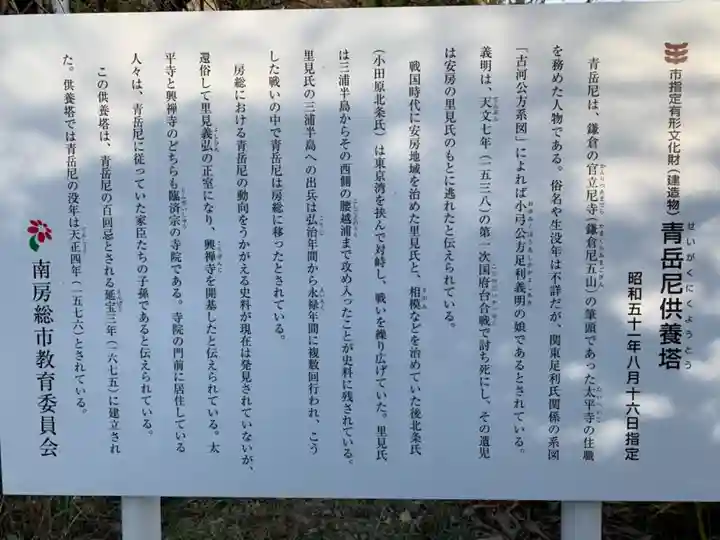 市指定有形文化財(建造物)青岳尼供養塔
せいがくにくようとう
昭和五十一年八月十六日指定
青岳尼は、鎌倉の官立尼寺(鎌倉尼五山)の筆頭であった太平寺の住職
を務めた人物である。俗名や生没年は不詳だが、関東足利氏関係の系図
「古河公方系図」によれば小弓公方足利義明の娘であるとされている。
義明は、天文七年(一五三八)の第一次国府台合戦で討ち死にし、その遺児
は安房の里見氏のもとに逃れたと伝えられている。
戦国時代に安房地域を治めた里見氏と、相模などを治めていた後北条氏
(小田原北条氏)は東京湾を挟んで対峙し、戦いを繰り広げていた。里見氏
は三浦半島からその西側の腰越浦まで攻め入ったことが史料に残されている。
里見氏の三浦半島への出兵は弘治年間から永禄年間に複数回行われ、こう
した戦いの中で青岳尼は房総に移ったとされている。
房総における青岳尼の動向をうかがえる史料が現在は発見されていないが、
還俗して里見義弘の正室になり、興禅寺を開基したと伝えられている。太
平寺と興禅寺のどちらも臨済宗の寺院である。寺院の門前に居住している
人々は、青岳尼に従っていた家臣たちの子孫であると伝えられている。
この供養塔は、青岳尼の百回忌とされる延宝三年(一六七五)に建立され
た。供養塔では青岳尼の没年は天正四年(一五七六)とされている。
南房総市教育委員会